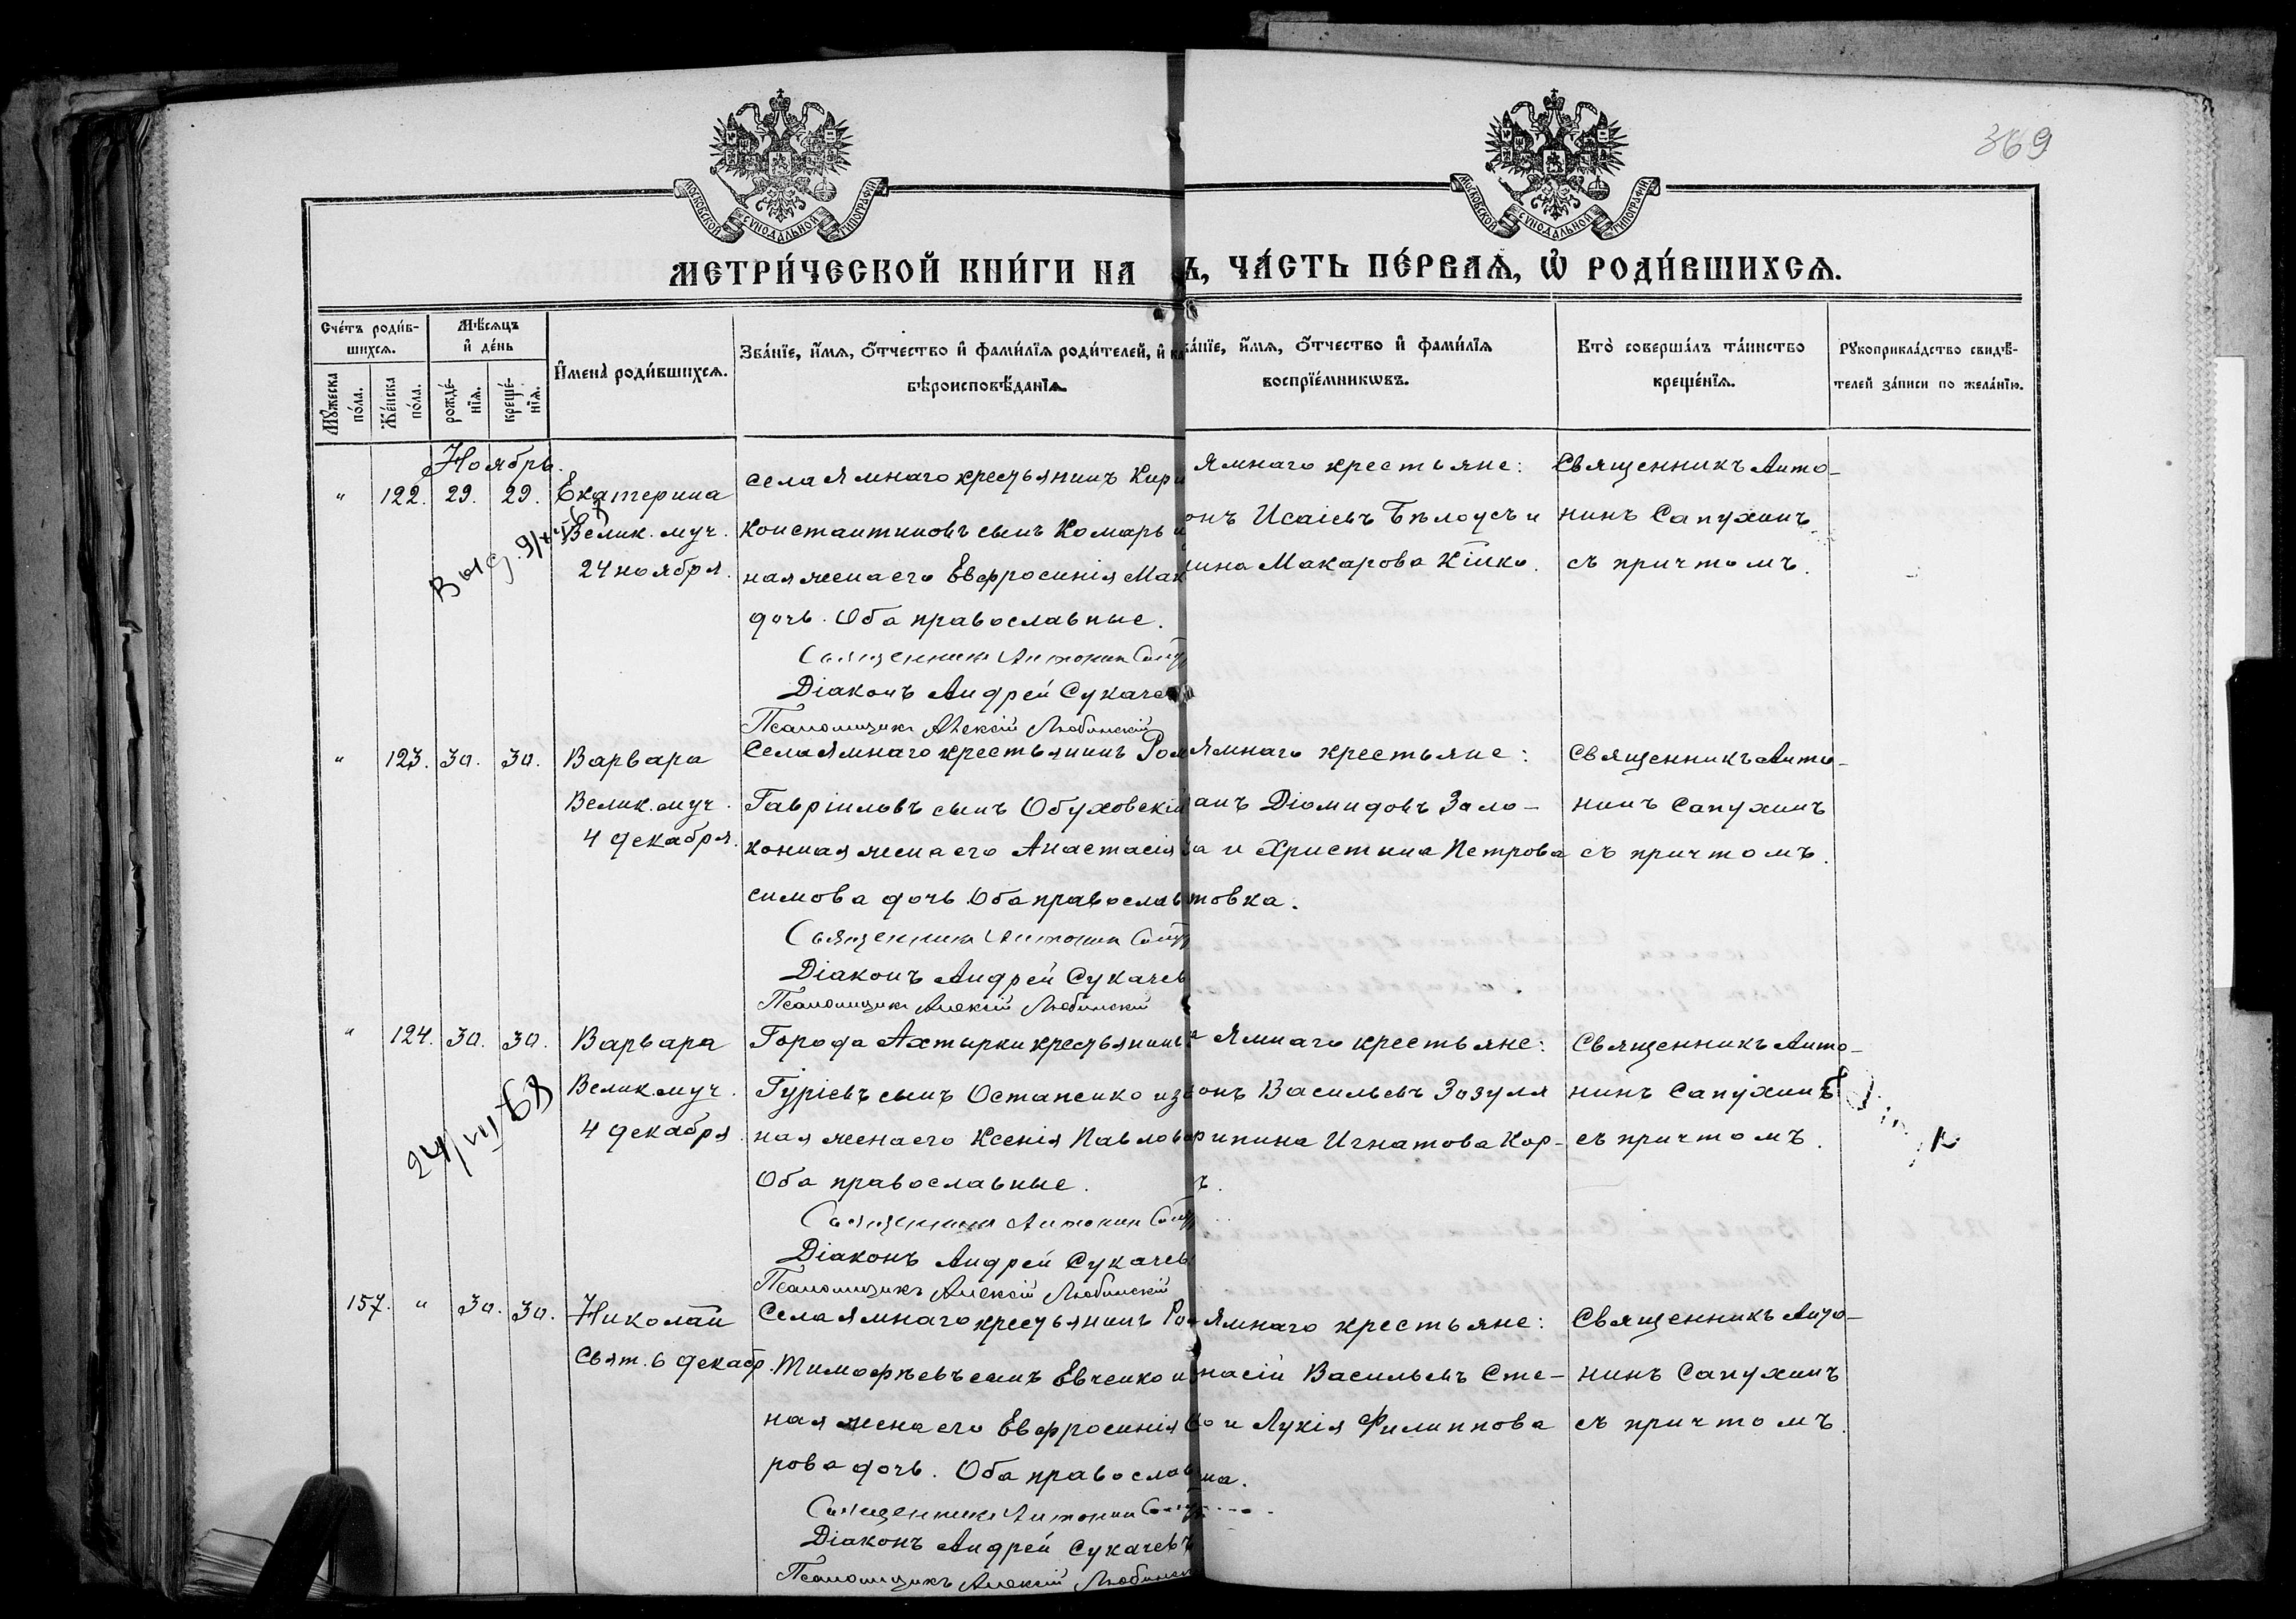 369
МОСКОВСКОЙ СУНОДАЛЬНОЙ ТИПОГРАФІИ
МОСКОВСКОЙ СУНОДАЛЬНОЙ ТИПОГРАФІИ
МЕТРИ́ЧЕСКОЙ КНИ́ГИ НА
Ъ, ЧА́СТЬ ПЕ́РВАѦ, Ѽ РОДИ́ВШИХСѦ.
Сче́тъ роди́в-
шихсѧ.
Мꙋ́жеска по́ла.
Же́нска по́ла.
Мѣ́сѧцъ
и҆ де́нь
рожде́-
нїѧ.
креще́-
нїѧ.
И҆мена̀ роди́вшихсѧ.
Зва́нїе, и҆́мѧ, ѻ҆́тчество и҆ фами́лїѧ роди́телей, и҆
вѣроисповѣ́данїѧ.
а́нїе, и҆́мѧ, ѻ҆́тчество и҆ фами́лїѧ
воспрїе́мникωвъ.
Кто̀ соверша́лъ та́инство
креще́нїѧ.
Рꙋкоприкла́дство свидѣ́-
телей за́писи по жела́нїю.
Ноябрь.
" 122. 29. 29. Екатерина
Велик. муч.
24 ноября.
Выд.
села Ямнаго крестьянинъ Кир
Константиновъ сынъ Комарь и
ная жена его Евфросинія Мак
дочь. Оба православные.
Священникъ Антонин
Діаконъ Андрей Сукачев
Псаломщикъ Алексій Любинскій
Ямнаго крестьяне:
онъ Исаіевъ Бѣлоусъ и
ина Макарова Кійко.
Священникъ Анто-
нинъ Сапухинъ
съ причтомъ.
" 123. 30. 30. Варвара
Велик. муч.
4 декабря.
Села Ямнаго крестьянинъ Ром
Гавріиловъ сынъ Обуховскій
конная жена его Анастасія
симова дочь. Оба православ
Священникъ Антонин
Діаконъ Андрей Сукачев
Псаломщикъ Алексій Любинскій
Ямнаго крестьяне:
анъ Діомидовъ Зало-
за и Христина Петрова
товка.
Священникъ Анто-
нинъ Сапухинъ
съ причтомъ.
" 124. 30. 30. Варвара
Велик. муч.
4 декабря.
24/VII 68
Города Ахтырки крестьянинъ
Гуріевъ сынъ Остапенко и за
ная жена его Ксенія Павлова
Оба православные.
Священникъ Антонин
Діаконъ Андрей Сукачев
Псаломщикъ Алексій Любинскій
Ямнаго крестьяне:
онъ Васильевъ Зозуля
рипина Игнатова Кор-
ъ.
Священникъ Анто-
нинъ Сапухинъ
съ причтомъ.
157. " 30. 30. Николай
Свят. 6 декабр.
Села Ямнаго крестьянинъ Ро
Тимофѣевъ сынъ Евченко и
ная жена его Евфросинія
рова дочь. Оба православ
Священникъ Антонин
Діаконъ Андрей Сукачевъ
Псаломщикъ Алексій Любинск
Ямнаго крестьяне:
насій Васильевъ Сте-
ко и Лукія Филиппова
на.
Священникъ Анто-
нинъ Сапухинъ
съ причтомъ.